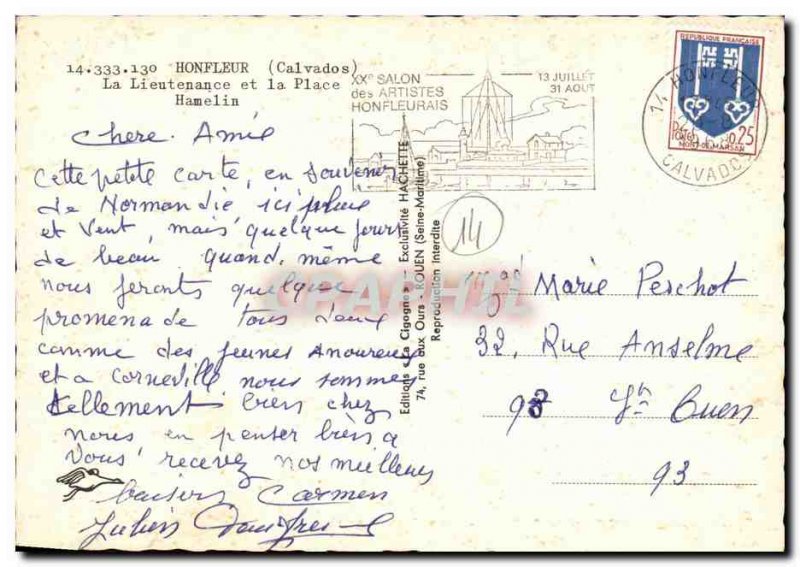 14.333.130 HONFLEUR (Calvados)
La Lieutenance et la Place
Hamelin
XXe SALON
des ARTISTES
HONFLEURAIS
13 JUILLET
31 AOUT
REPUBLIQUE FRANÇAISE
POSTES 0,25
MONT-DE-MARSAN
14 HONFLEUR
CALVADOS
chere Amie
Cette petite carte, en souvenir
de Normandie ici pluie
et vent, mais quelque jours
de beau quand même
nous feronts quelque
promenade tous deux
comme des jeunes Amoureux
et a Corneville nous sommes
tellement bien chez
nous en penser bien a
vous recevez nos meilleurs
baisers Carmen
Julien
Editions « La Cigogne » - Exclusivité HACHETTE
74, rue aux Ours - ROUEN (Seine-Maritime)
Reproduction Interdite
14
CPAPHIL
Marie Perchot
32, Rue Anselme
93 St Ouen
93